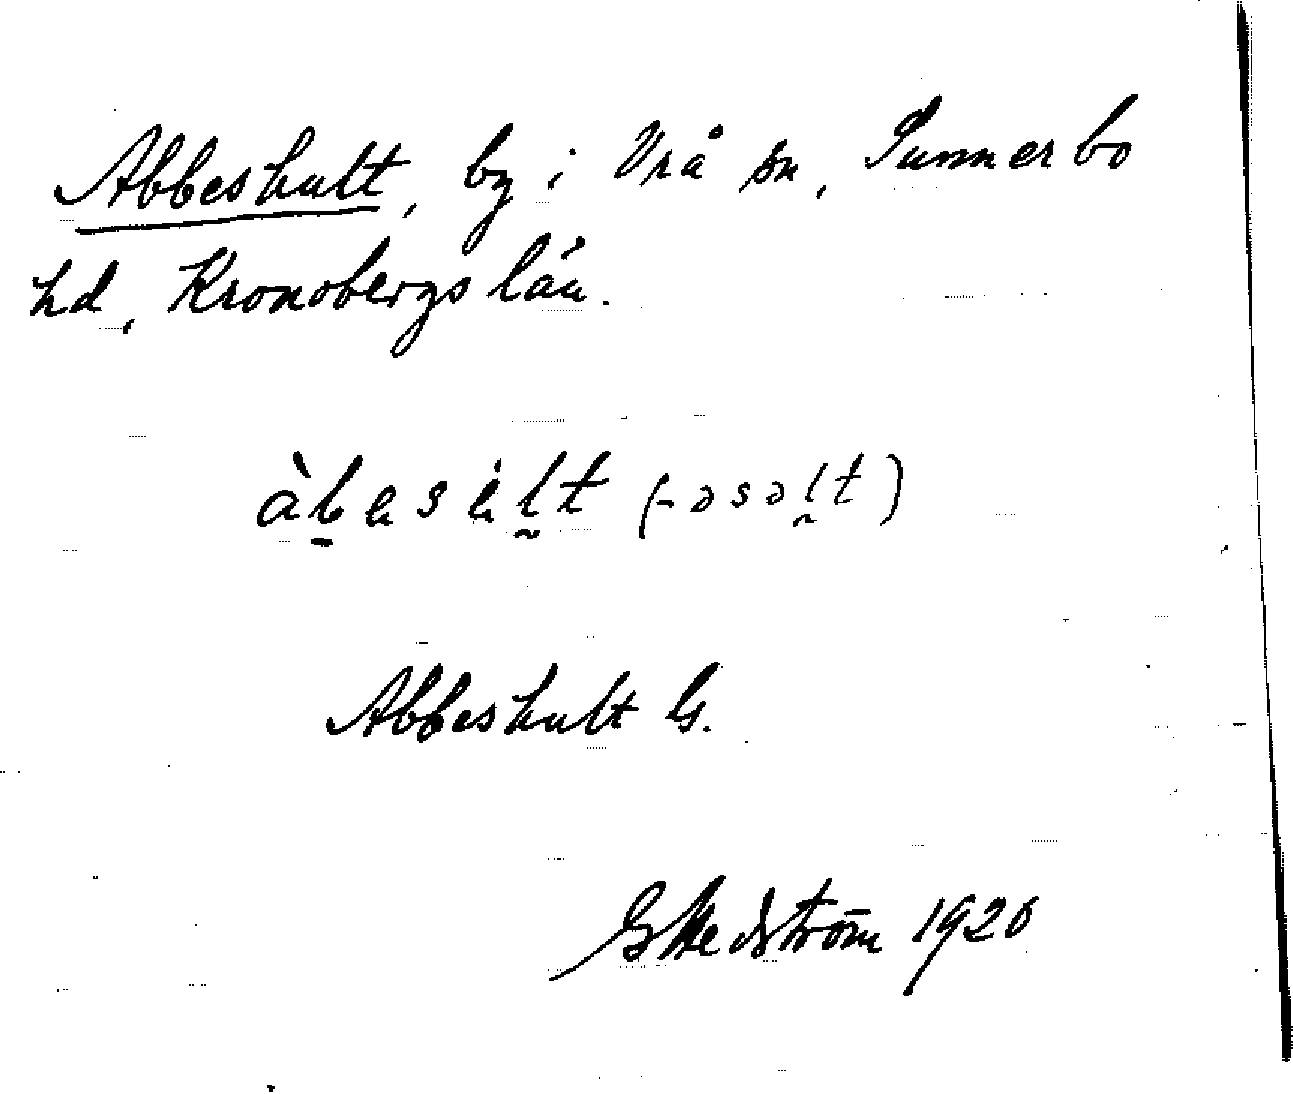 Abbeshult, by i Vrå sn, Sunnerbo
hd, Kronobergs län.
àb̠esèl̰t (-əsəl̰t)
Abbeshult G.
G Hedström 1920